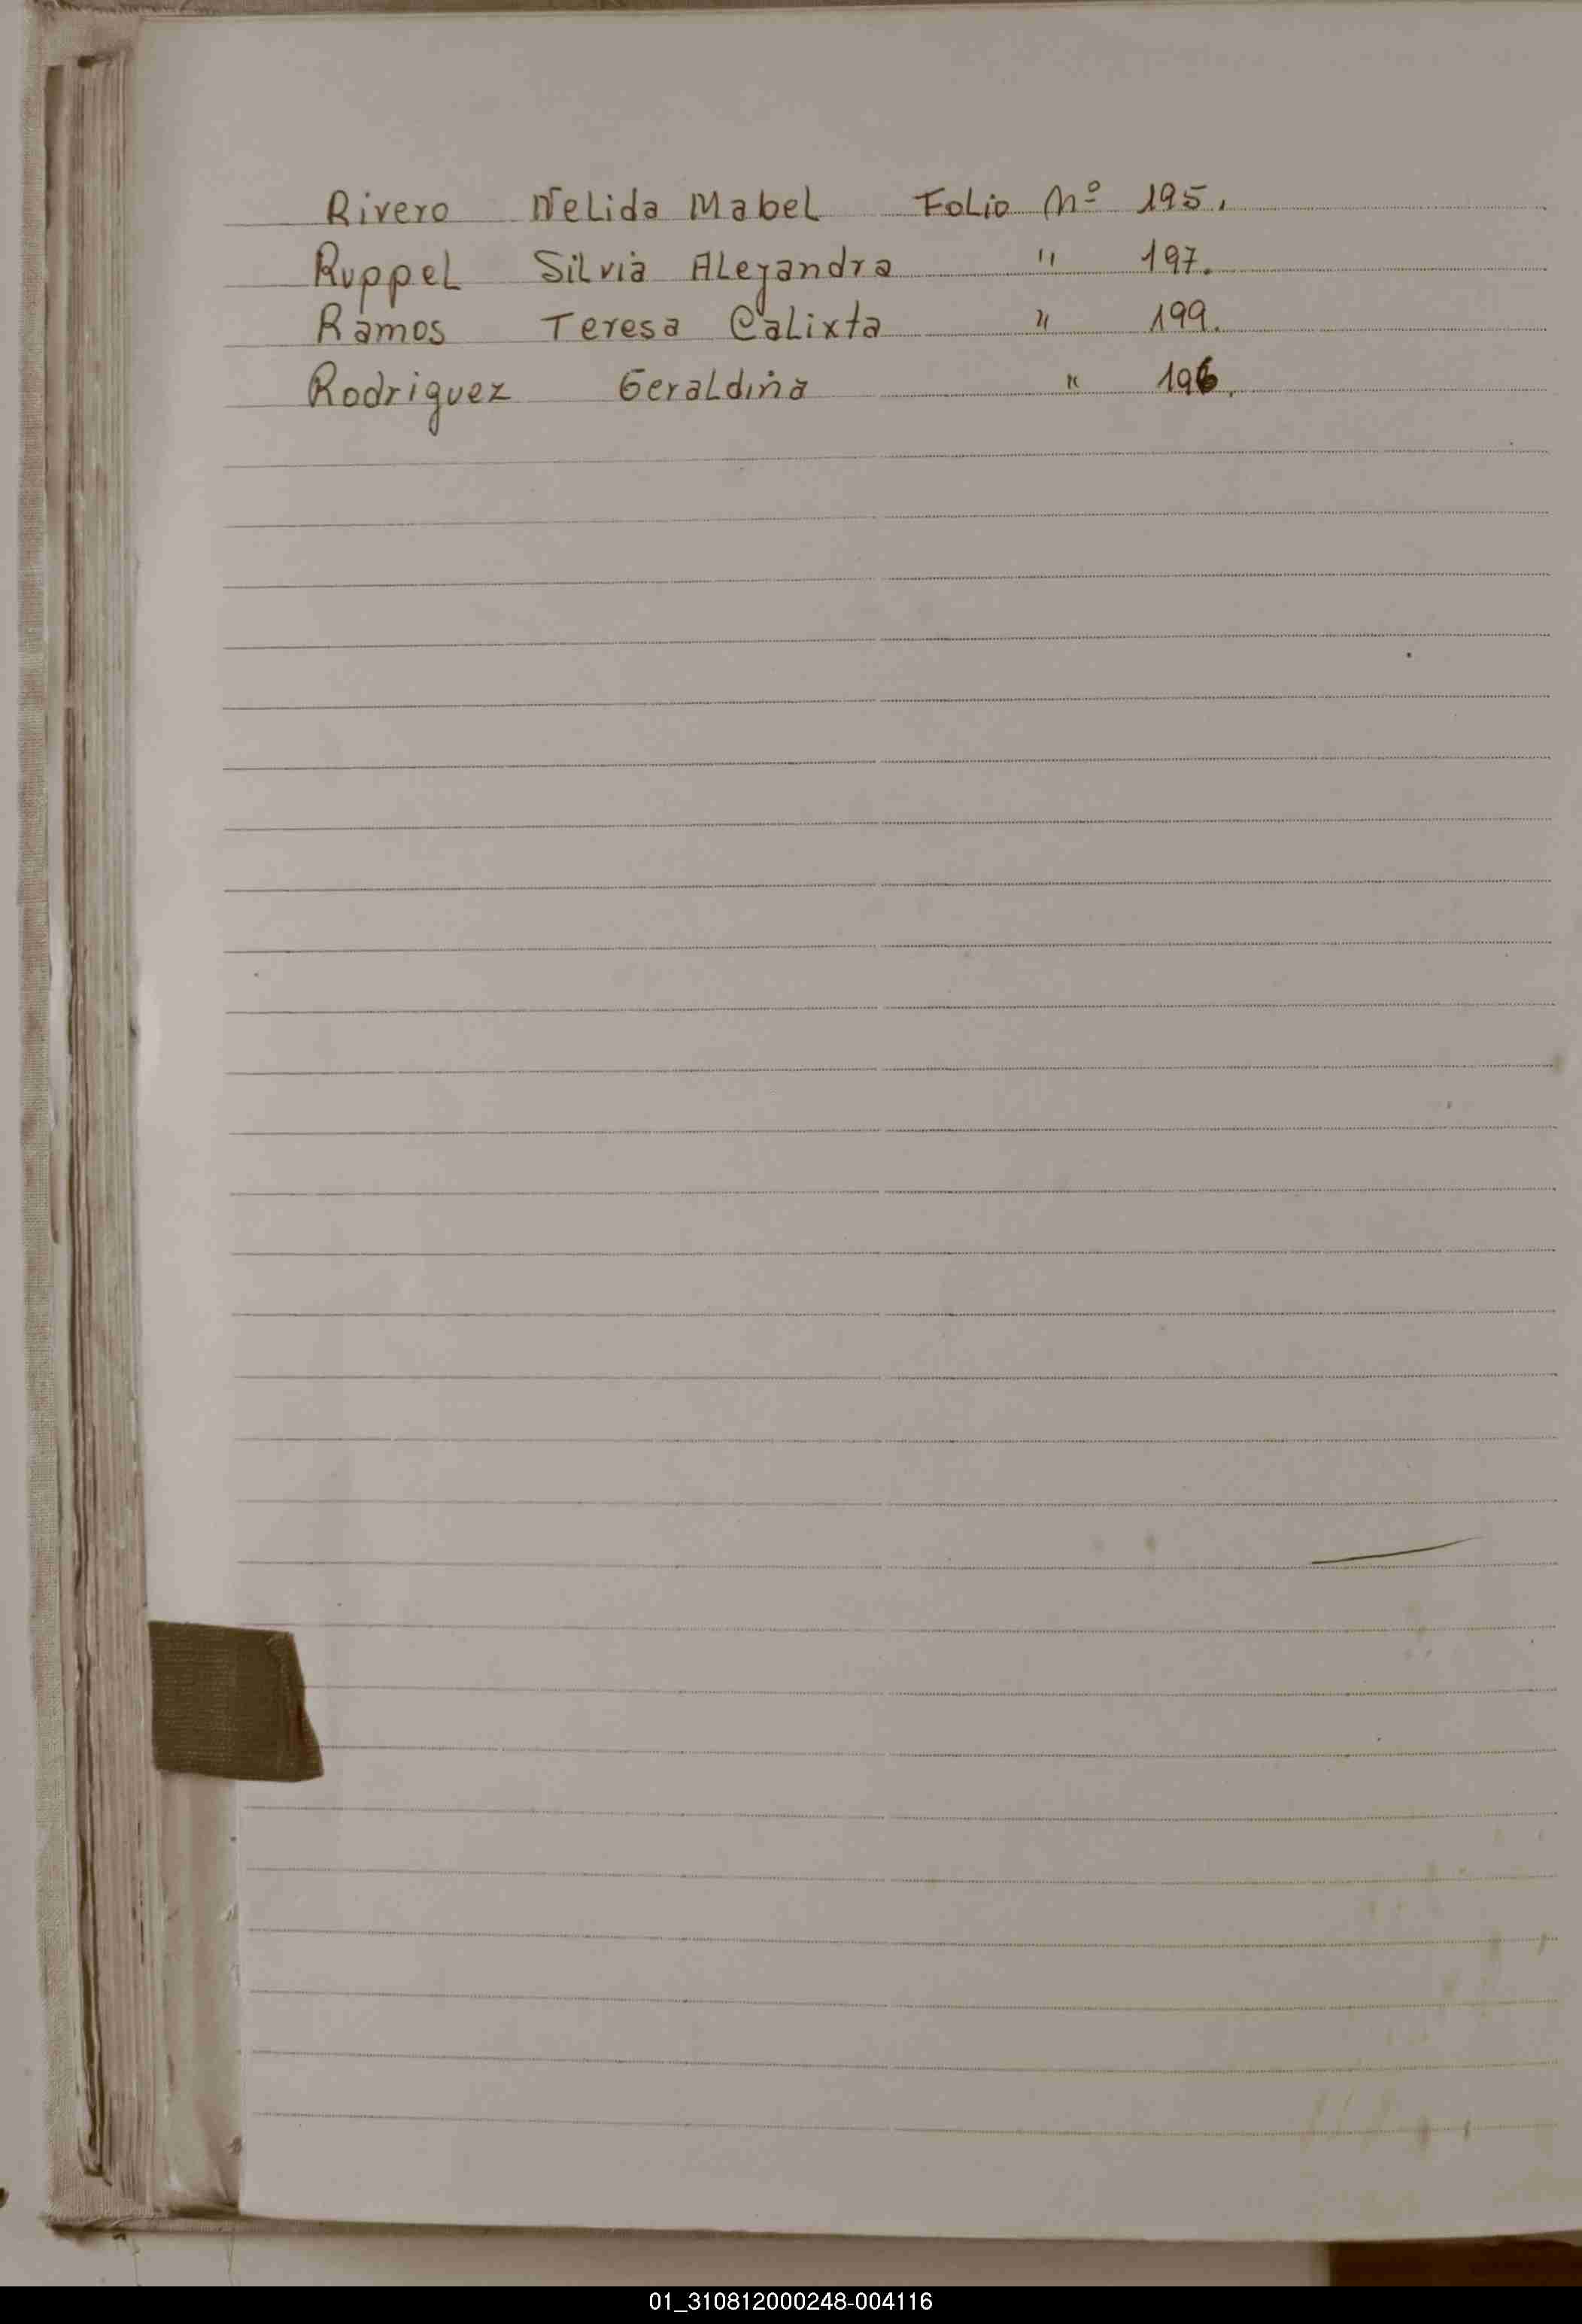 Rivero Nelida Mabel Folio Nº 195.
Ruppel Silvia Alejandra " 197.
Ramos Teresa Calixta " 199.
Rodriguez Geraldina " 196.
01_310812000248-004116